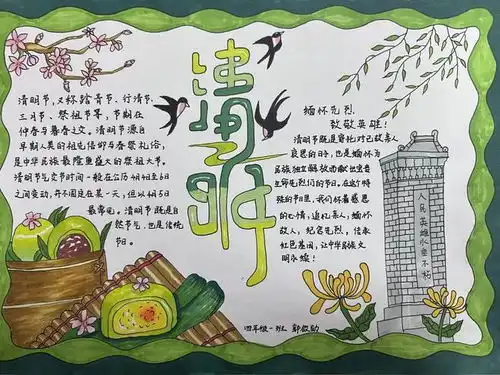 清明
清明节，又称踏青节、行清节、
三月节、祭祖节等，节期在
仲春与暮春之交。清明节源自
早期人类的祖先信仰与春祭礼俗，
是中华民族最隆重盛大的祭祖大节。
清明节气交节时间一般在公历4月4至6日
之间变动，并不固定在某一天，但以4月5日
最常见。清明节既是自
然节气，也是传统
节日。
缅怀先烈，
致敬英雄！
清明节既是寄托对已故亲人
哀思的日子，也是缅怀为
民族独立解放而献出宝贵
生命先烈们的节日。在这个特
殊的节日里，我们怀着感恩
的心情，追忆亲人，缅怀
故人，纪念先烈，传承
红色基因，让中华民族文
明永续！
人民英雄永垂不朽
四年级一班 郭俊勋